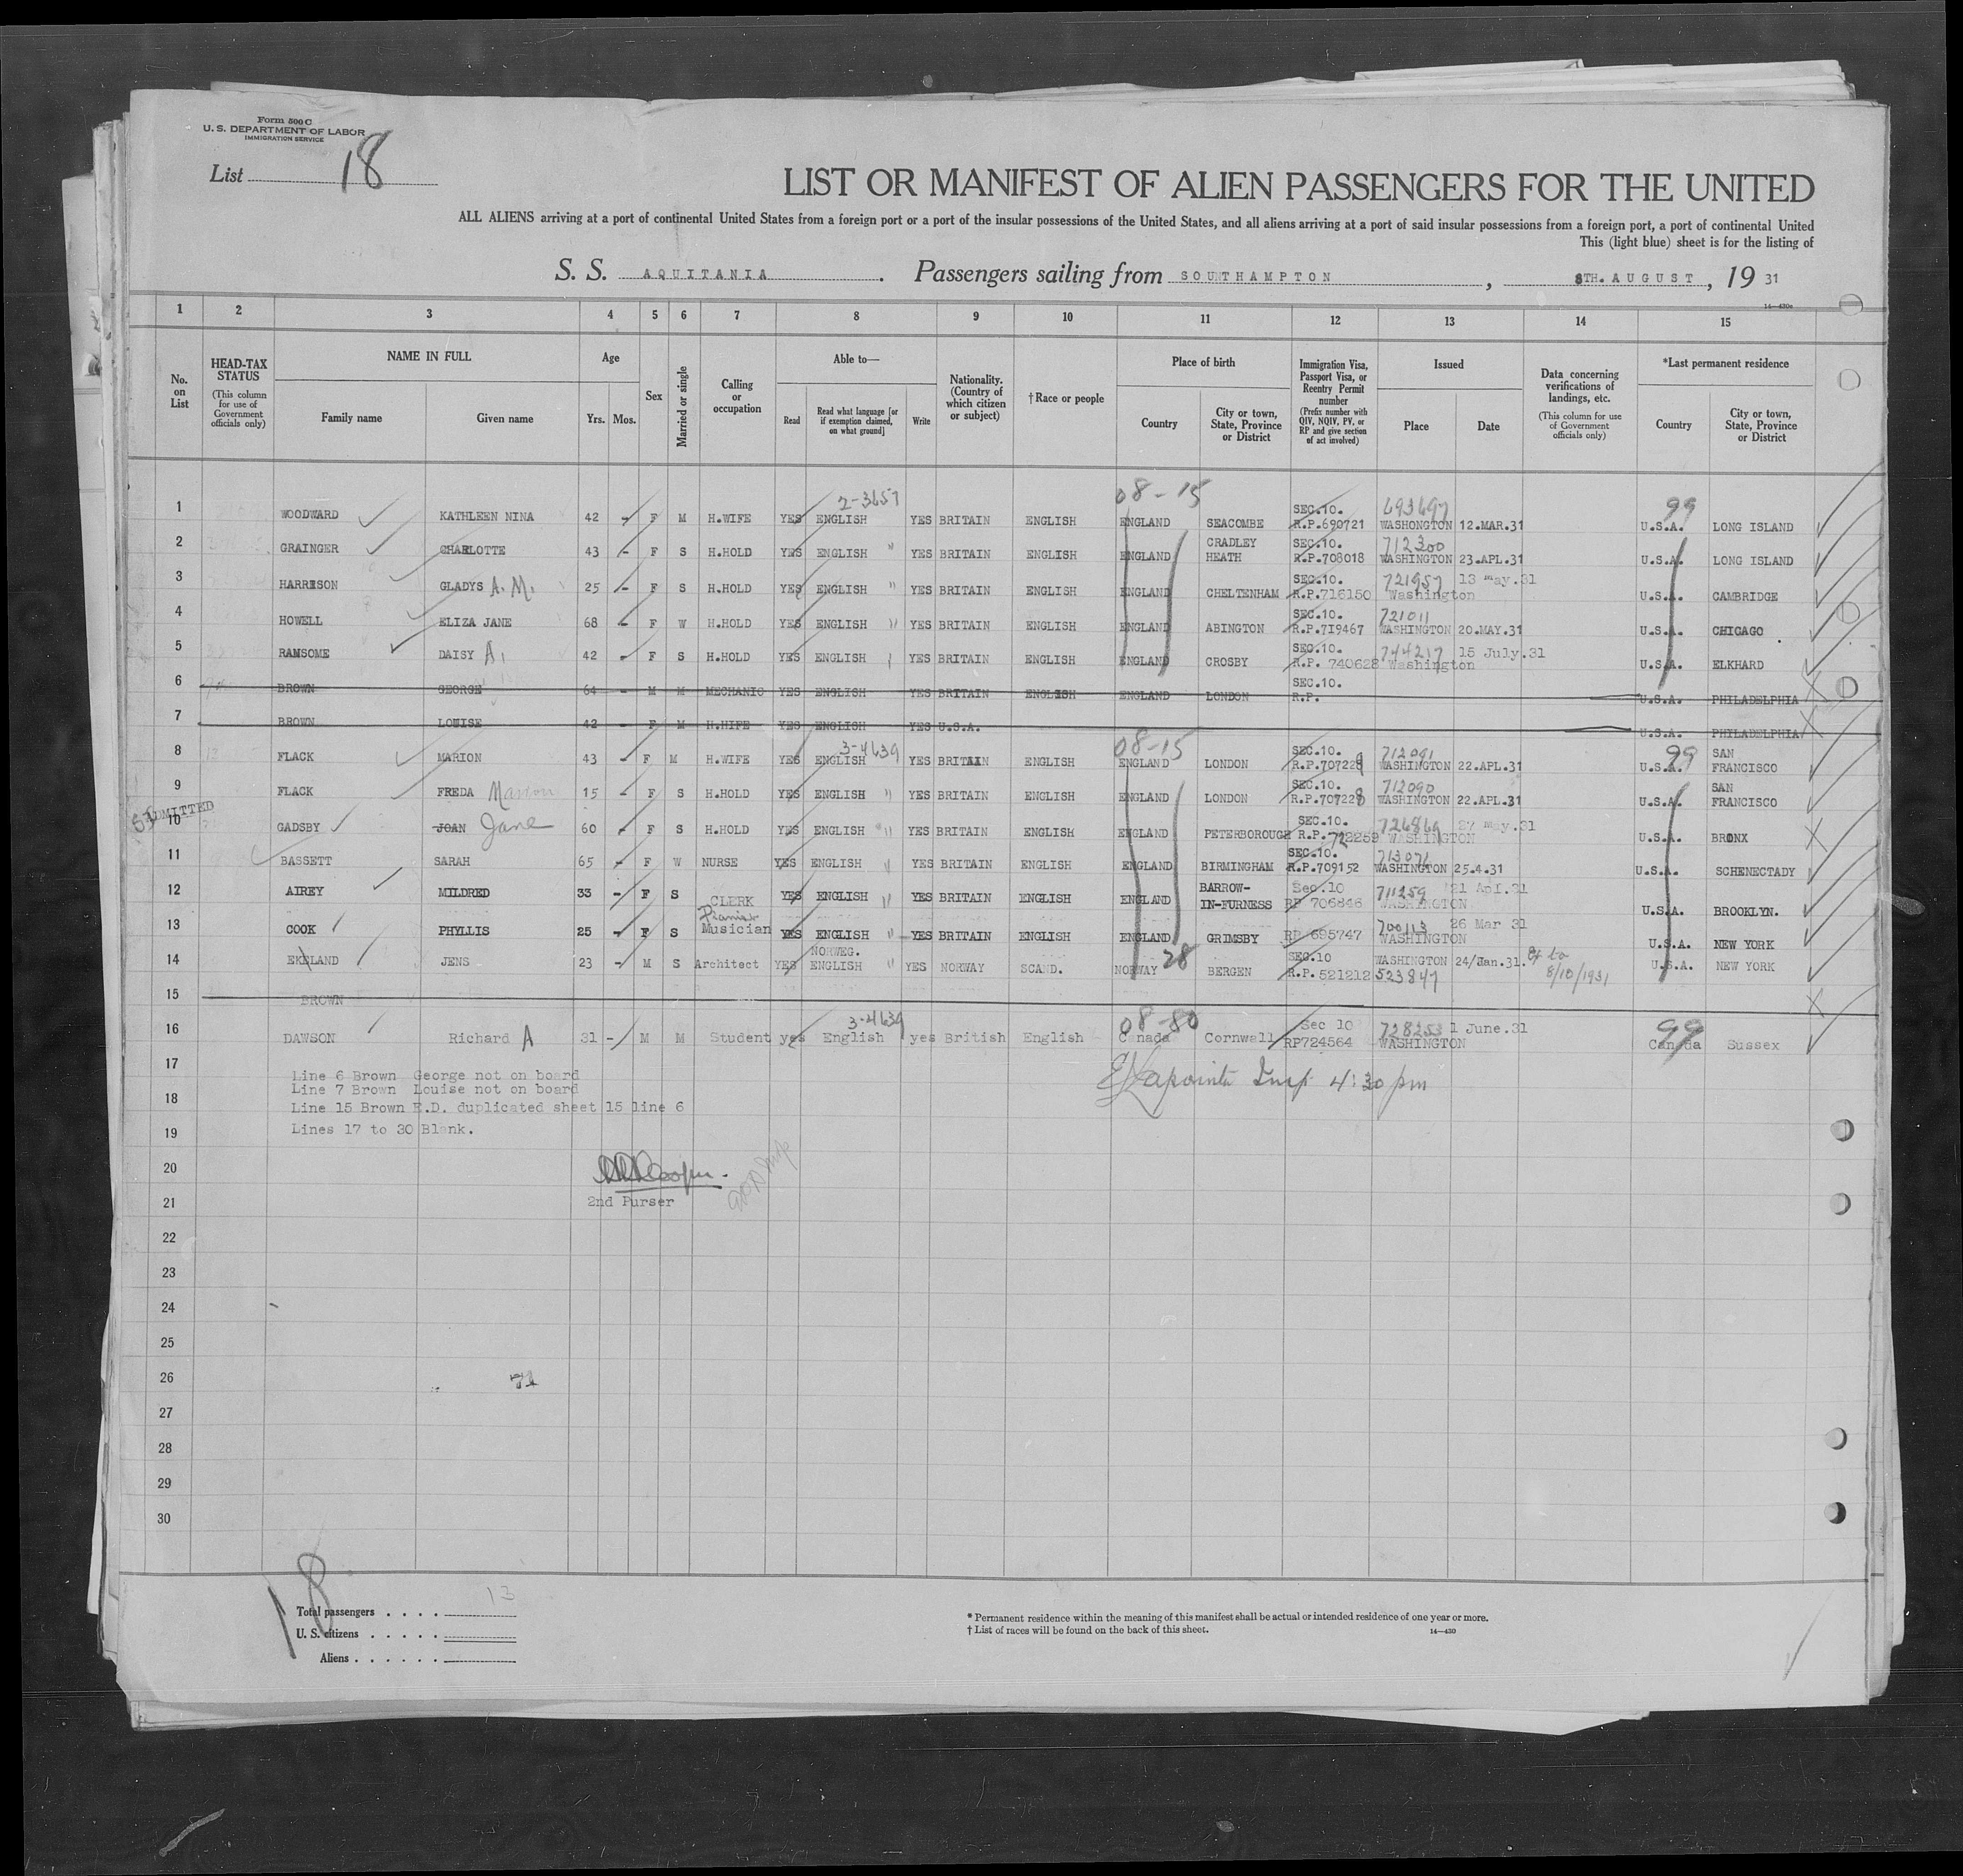 Form 500 C
U. S. DEPARTMENT OF LABOR
IMMIGRATION SERVICE
List 18
LIST OR MANIFEST OF ALIEN PASSENGERS FOR THE UNITED
ALL ALIENS arriving at a port of continental United States from a foreign port or a port of the insular possessions of the United States, and all aliens arriving at a port of said insular possessions from a foreign port, a port of continental United
This (light blue) sheet is for the listing of
S. S. AQUITANIA. Passengers sailing from SOUTHAMPTON, 8TH. AUGUST, 19 31
14—430c
1 2 3 4 5 6 7 8 9 10 11 12 13 14 15
No. on List
HEAD-TAX STATUS (This column for use of Government officials only)
NAME IN FULL Family name Given name
Age Yrs. Mos.
Sex
Married or single
Calling or occupation
Able to— Read Read what language [or if exemption claimed, on what ground] Write
Nationality. (Country of which citizen or subject)
†Race or people
Place of birth Country City or town, State, Province or District
Immigration Visa, Passport Visa, or Reentry Permit number (Prefix number with QIV, NQIV, PV, or RP and give section of act involved)
Issued Place Date
Data concerning verifications of landings, etc. (This column for use of Government officials only)
*Last permanent residence Country City or town, State, Province or District
2-3657 08-15 99
1 WOODWARD KATHLEEN NINA 42 - F M H.WIFE YES ENGLISH YES BRITAIN ENGLISH ENGLAND SEACOMBE SEC.10. R.P.690721 693697 WASHONGTON 12.MAR.31 U.S.A. LONG ISLAND
2 GRAINGER CHARLOTTE 43 - F S H.HOLD YES ENGLISH " YES BRITAIN ENGLISH ENGLAND CRADLEY HEATH SEC.10. R.P.708018 712300 WASHINGTON 23.APL.31 U.S.A. LONG ISLAND
3 HARRISON GLADYS A.M. 25 - F S H.HOLD YES ENGLISH " YES BRITAIN ENGLISH ENGLAND CHELTENHAM SEC.10. R.P.716150 721957 Washington 13 may.31 U.S.A. CAMBRIDGE
4 HOWELL ELIZA JANE 68 - F W H.HOLD YES ENGLISH " YES BRITAIN ENGLISH ENGLAND ABINGTON SEC.10. R.P.719467 721011 WASHINGTON 20.MAY.31 U.S.A. CHICAGO
5 RANSOME DAISY A. 42 - F S H.HOLD YES ENGLISH YES BRITAIN ENGLISH ENGLAND CROSBY SEC.10. R.P. 740628 744217 Washington 15 July.31 U.S.A. ELKHARD
6 BROWN GEORGE 64 - M M MECHANIC YES ENGLISH YES BRITAIN ENGLISH ENGLAND LONDON SEC.10. R.P. U.S.A. PHILADELPHIA
7 BROWN LOUISE 42 - F M H.HIFE YES ENGLISH YES U.S.A. U.S.A. PHILADELPHIA
3-4639 08-15 99
8 FLACK MARION 43 - F M H.WIFE YES ENGLISH YES BRITAIN ENGLISH ENGLAND LONDON SEC.10. R.P.707229 712091 WASHINGTON 22.APL.31 U.S.A. SAN FRANCISCO
9 FLACK FREDA Marion 15 - F S H.HOLD YES ENGLISH " YES BRITAIN ENGLISH ENGLAND LONDON SEC.10. R.P.707228 712090 WASHINGTON 22.APL.31 U.S.A. SAN FRANCISCO
ADMITTED
10 GADSBY JOAN Jane 60 - F S H.HOLD YES ENGLISH " YES BRITAIN ENGLISH ENGLAND PETERBOROUGH SEC.10. R.P. 722259 WASHINGTON 27 may.31 U.S.A. BRONX
11 BASSETT SARAH 65 - F W NURSE YES ENGLISH " YES BRITAIN ENGLISH ENGLAND BIRMINGHAM SEC.10. R.P.709152 713071 WASHINGTON 25.4.31 U.S.A. SCHENECTADY
12 AIREY MILDRED 33 - F S CLERK YES ENGLISH " YES BRITAIN ENGLISH ENGLAND BARROW-IN-FURNESS Sec.10 RP 706846 711259 WASHINGTON 21 Apl.31 U.S.A. BROOKLYN.
13 COOK PHYLLIS 25 - F S Pianist Musician YES ENGLISH " YES BRITAIN ENGLISH ENGLAND GRIMSBY RP 695747 700113 WASHINGTON 26 Mar 31 U.S.A. NEW YORK
14 EKELAND JENS 23 - M S Architect YES NORWEG. ENGLISH " YES NORWAY SCAND. NORWAY 28 BERGEN SEC.10 R.P.521212 523847 WASHINGTON 24/Jan.31. 8/10/1931 U.S.A. NEW YORK
15 BROWN
3-4639 08-80 99
16 DAWSON Richard A 31 - M M Student yes English yes British English Canada Cornwall Sec 10 RP724564 728253 WASHINGTON 1 June.31 Canada Sussex
17 Line 6 Brown George not on board
Line 7 Brown Louise not on board
18 Line 15 Brown E.D. duplicated sheet 15 line 6
19 Lines 17 to 30 Blank.
Lapointe Insp 4:30 pm
20
21 2nd Purser
22
23
24
25
26 71
27
28
29
30
18
Total passengers . . . . 13
U. S. citizens . . . . .
Aliens . . . . . .
* Permanent residence within the meaning of this manifest shall be actual or intended residence of one year or more.
† List of races will be found on the back of this sheet.
14—430